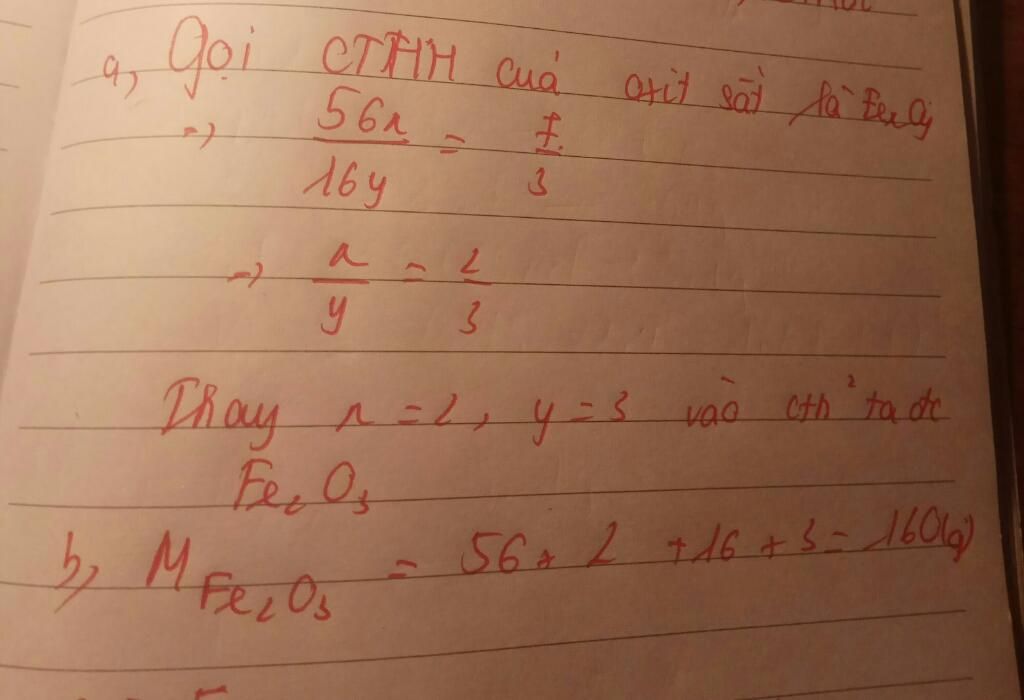 a, Gọi CTHH cuả oxit sắt là FexOy
=> 56x/16y = 7/3
=> x/y = 2/3
Thay x = 2, y = 3 vào cthh² ta đc
Fe2O3
b, M Fe2O3 = 56 * 2 + 16 * 3 = 160(g)